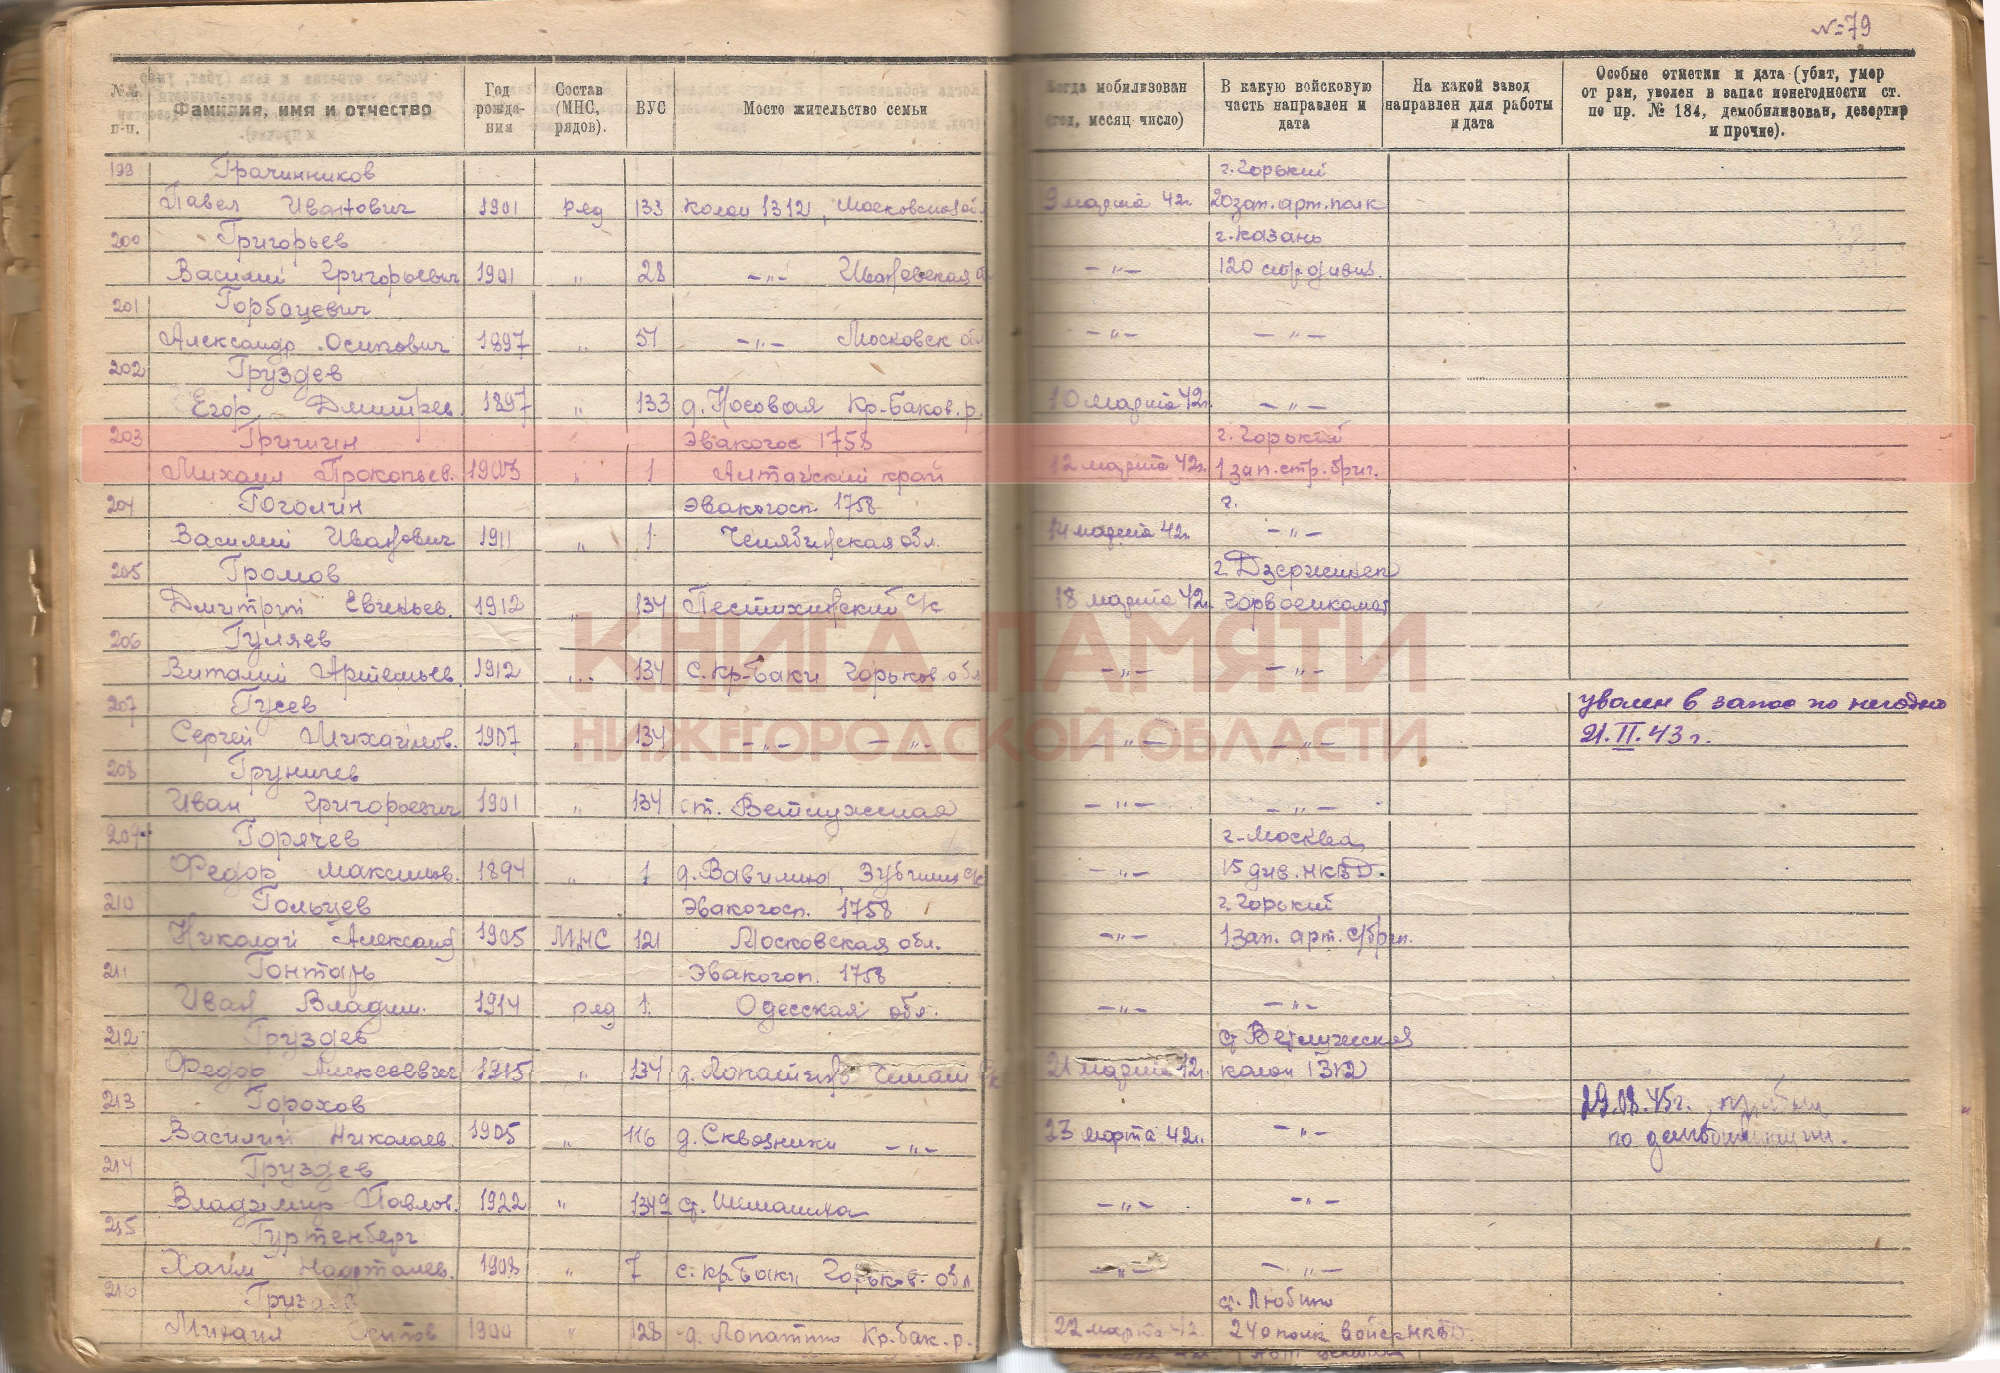 № 79
№№ п-п.
Фамилия, имя и отчество
Год рожде- ния
Состав (МНС, рядов).
ВУС
Место жительство семьи
Когда мобилизован (год, месяц число)
В какую войсковую часть направлен и дата
На какой завод направлен для работы и дата
Особые отметки и дата (убит, умер от ран, уволен в запас по негодности ст. по пр. № 184, демобилизован, дезертир и прочие).
199 Грачинников г. Горький
Павел Иванович 1901 ряд 133 колон 1312, Московская об. 9 марта 42г. 20 зап. арт. полк
200 Григорьев г. Казань
Василий Григорьевич 1901 " 28 -"- Ивановская -"- 120
201 Горбацевич
Александр Осипович 1897 " 51 -"- Московск обл -"- -"-
202 Груздев
Егор Дмитрев. 1897 " 133 д. Носовая Кр-Баков. р. 10 марта 42г. -"-
203 Гришин Эвакогос 1758 г. Горький
Михаил Прокопьев. 1903 " 1 Алтайский край 12 марта 42г. 1 зап. стр. бриг.
204 Гоголин Эвакогосп. 1758 г.
Василий Иванович 1911 " 1 Челябинская обл. 14 марта 42г. -"-
205 Громов г. Дзержинск
Дмитрий Евгеньев. 1912 " 134 с/с 18 марта 42г. Горвоенкомат
206 Гуляев
Виталий Артемьев. 1912 " 134 с. Кр-Баки Горьков. обл -"- -"-
207 Гусев уволен в запас по негодно
Сергей Михайлов. 1907 " 134 -"- -"- -"- -"- 21.II.43г.
208 Груничев
Иван Григорьевич 1901 " 134 ст. Ветлужская -"- -"-
209 Горячев г. Москва
Федор Максимов. 1894 " 1 д. Вавилиха -"- 15 див. НКВД.
210 Гольцев Эвакогосп. 1758 г. Горький
Николай Александ 1905 МНС 121 Московская обл. -"- 1 зап. арт.
211 Гонтарь Эвакогосп. 1758
Иван Владим. 1914 ряд 1 Одесская обл. -"- -"-
212 Груздев ст Ветлужская
Федор Алексеевич 1915 " 134 д. 21 марта 42г. колон 1312
213 Горохов 29.08.45г. прибыл
Василий Николаев. 1905 " 116 д. Сквозники -"- 23 марта 42г. -"- по демобилизации.
214 Груздев
Владимир Павлов. 1922 " 134 ст. Шеманиха -"- -"-
215 Гуртенберг
Хаим Нафталев. 1908 " 7 с. Кр Баки Горьков. обл -"- -"-
216 ст. Люблино
Михаил 1900 " 128 д. Кр. бак. р. 22 марта 42 240 полк Войск НКВД.
КНИГА ПАМЯТИ
НИЖЕГОРОДСКОЙ ОБЛАСТИ